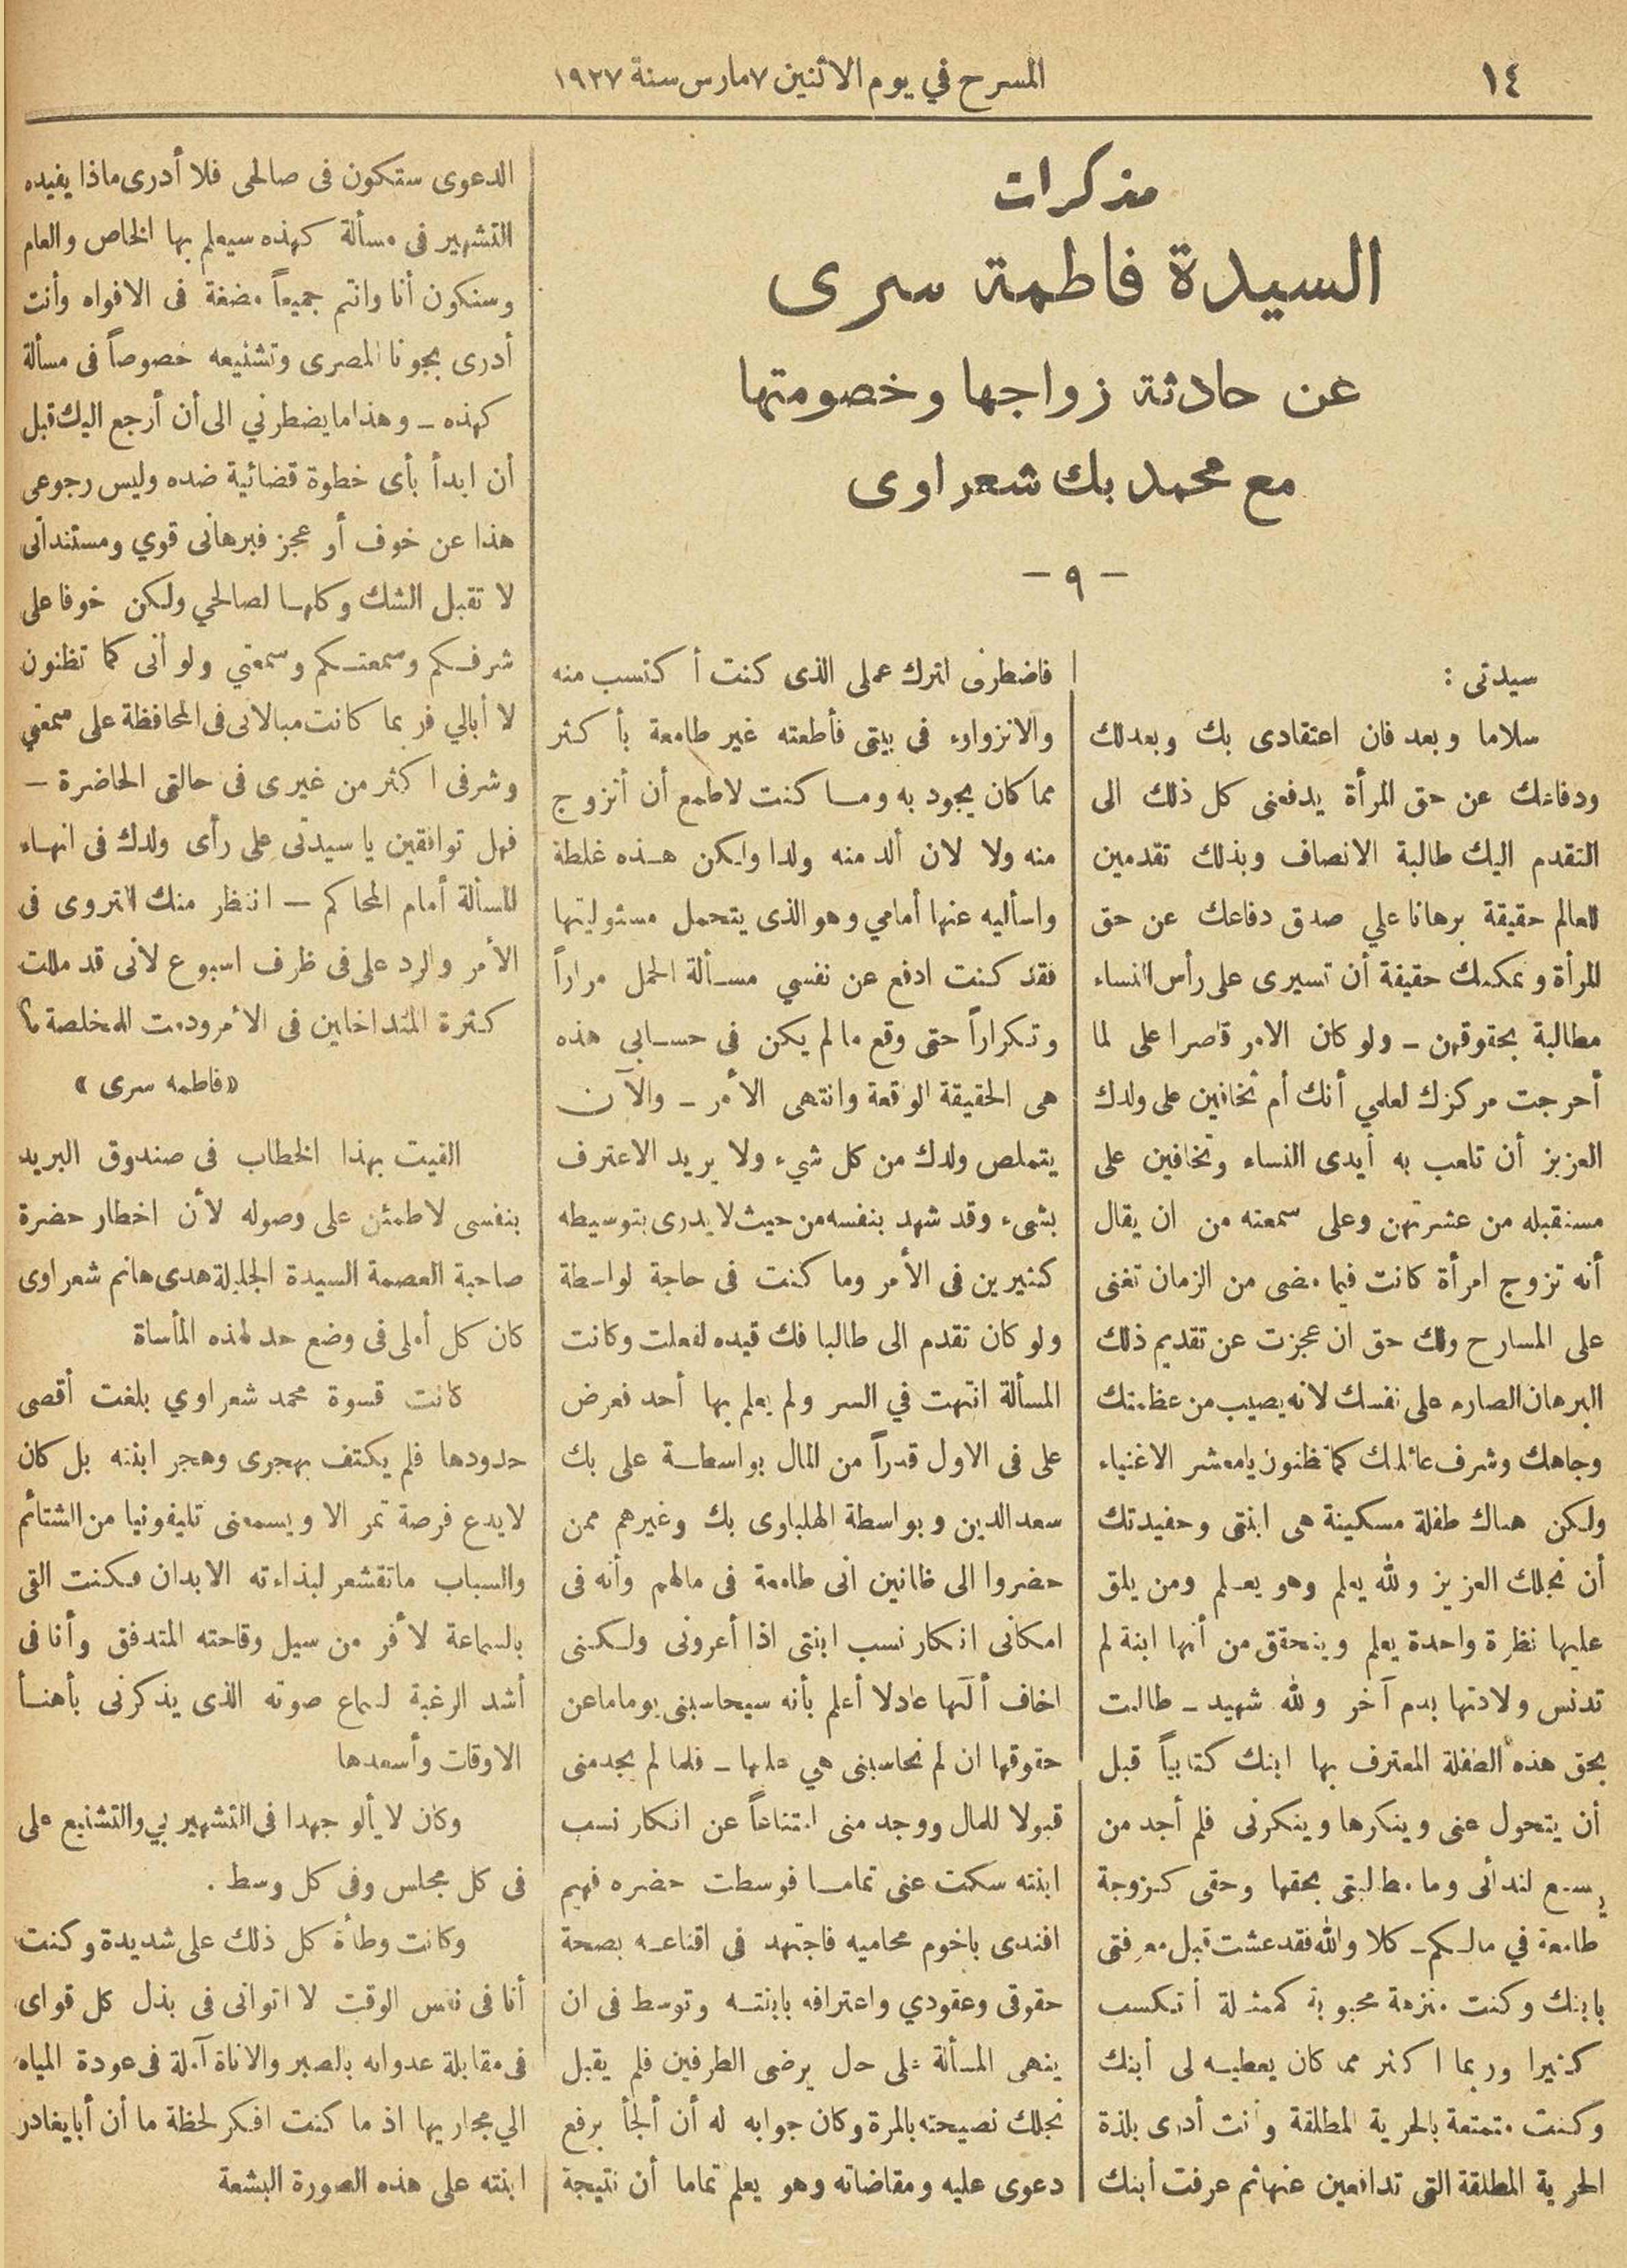 ١٤
المسرح في يوم الاثنين ٧ مارس سنة ١٩٢٧
مذكرات
السيدة فاطمة سرى
عن حادثة زواجها وخصومتها
مع محمد بك شعراوى
— ٩ —
سيدتى :
سلاما وبعد فان اعتقادى بك وبعدلك
ودفاعك عن حق المرأة يدفعنى كل ذلك الى
التقدم اليك طالبة الانصاف وبذلك تقدمين
للعالم حقيقة برهانا علي صدق دفاعك عن حق
المرأة ويمكنك حقيقة أن تسيرى على رأس النساء
مطالبة بحقوقهن – ولو كان الامر قاصرا على لما
أحرجت مركزك لعلمي أنك أم تخافين على ولدك
العزيز أن تلعب به أيدى النساء وتخافين على
مستقبله من عشرتهن وعلى سمعته من ان يقال
أنه تزوج امرأة كانت فيما مضى من الزمان تغنى
على المسارح ولك حق ان عجزت عن تقديم ذلك
البرهان الصارم على نفسك لانه يصيب من عظمتك
وجاهك وشرف عائلتك كما تظنون يامعشر الاغنياء
ولكن هناك طفلة مسكينة هى ابنتى وحفيدتك
أن نجلك العزيز والله يعلم وهو يعلم ومن يلق
عليها نظرة واحدة يعلم ويتحقق من أنها ابنة لم
تدنس ولادتها بدم آخر والله شهيد – طالبت
بحق هذه الطفلة المعترف بها ابنك كتابياً قبل
أن يتحول عنى وينكرها وينكرنى فلم أجد من
يسمع لندائى وما مطالبتى بحقها وحقى كزوجة
طامعة في مالكم – كلا والله فقد عشت قبل معرفتى
بابنك وكنت منزهة محبوبة كممثلة أتكسب
كثيرا وربما اكثر مما كان يعطيه لى أبنك
وكنت متمتعة بالحرية المطلقة وأنت أدرى بلذة
الحرية المطلقة التى تدافعين عنها ثم عرفت أبنك
فاضطرنى لترك عملى الذى كنت أكتسب منه
والانزواء فى بيتى فأطعته غير طامعة بأكثر
مما كان يجود به وما كنت لاطمع أن أتزوج
منه ولا لان ألد منه ولدا ولكن هذه غلطة
واسأليه عنها أمامي وهو الذى يتحمل مسئوليتها
فقد كنت ادفع عن نفسي مسألة الحمل مراراً
وتكراراً حتى وقع ما لم يكن فى حسابي هذه
هى الحقيقة الوقعة وانتهى الأمر – والآن
يتملص ولدك من كل شيء ولا يريد الاعترف
بشىء وقد شهد بنفسه من حيث لا يدرى بتوسيطه
كثيرين فى الأمر وما كنت فى حاجة لواسطة
ولو كان تقدم الى طالبا فك قيده لفعلت وكانت
المسألة انتهت في السر ولم يعلم بها أحد فعرض
على فى الاول قدراً من المال بواسطة على بك
سعد الدين وبواسطة الهلباوى بك وغيرهم ممن
حضروا الى ظانين انى طامعة فى مالهم وأنه فى
امكانى انكار نسب ابنتى اذا أعرونى ولكنى
اخاف ألَها عادلا أعلم بأنه سيحاسبنى يوما ما عن
حقوقها ان لم تحاسبنى هي عليها – فلما لم يجد منى
قبولا للمال ووجد منى امتناعاً عن انكار نسب
ابنته سكت عنى تماما فوسطت حضره فهيم
افندى باخوم محاميه فاجتهد فى اقناعه بصحة
حقوقى وعقودي واعترافه بابنته وتوسط فى ان
ينهى المسألة على حل يرضى الطرفين فلم يقبل
نجلك نصيحته بالمرة وكان جوابه له أن ألجأ برفع
دعوى عليه ومقاضاته وهو يعلم تماما أن نتيجة
الدعوى ستكون فى صالحى فلا أدرى ماذا يفيده
التشهير فى مسألة كهذه سيعلم بها الخاص والعام
وسنكون أنا وانتم جميعاً مضغة فى الافواه وأنت
أدرى بجونا المصرى وتشنيعه خصوصاً فى مسألة
كهذه – وهذا ما يضطرني الى أن أرجع اليك قبل
أن ابدأ بأى خطوة قضائية ضده وليس رجوعى
هذا عن خوف أو عجز فبرهانى قوي ومستنداتى
لا تقبل الشك وكلها لصالحي ولكن خوفا على
شرفكم وسمعتكم وسمعتي ولو أنى كما تظنون
لا أبالي فربما كانت مبالاتى فى المحافظة على سمعتي
وشرفى اكثر من غيرى فى حالتى الحاضرة –
فهل توافقين يا سيدتى على رأى ولدك فى انهاء
المسألة أمام المحاكم – انتظر منك التروى فى
الأمر والرد على فى ظرف اسبوع لانى قد مللت
كثرة المتداخلين فى الأمر ودمت المخلصة ؟
«فاطمه سرى»
القيت بهذا الخطاب فى صندوق البريد
بنفسى لاطمئن على وصوله لأن اخطار حضرة
صاحبة العصمة السيدة الجليلة هدى هانم شعراوى
كان كل أملى فى وضع حد لهذه المأساة
كانت قسوة محمد شعراوي بلغت أقصى
حدودها فلم يكتف بهجرى وهجر ابنته بل كان
لايدع فرصة تمر الا ويسمعنى تليفونيا من الشتائم
والسباب ماتقشعر لبذاءته الابدان فكنت القى
بالسماعة لأفر من سيل وقاحته المتدفق وأنا فى
أشد الرغبة لسماع صوته الذى يذكرنى بأهنأ
الاوقات وأسعدها
وكان لا يألو جهدا فى التشهير بي والتشنيع على
فى كل مجلس وفى كل وسط .
وكانت وطأة كل ذلك على شديدة وكنت
أنا فى نفس الوقت لا اتوانى فى بذل كل قواى
فى مقابلة عدوانه بالصبر والاناة آملة فى عودة المياه
الي مجاريها اذ ما كنت افكر لحظة ما أن أبا يغادر
ابنته على هذه الصورة البشعة